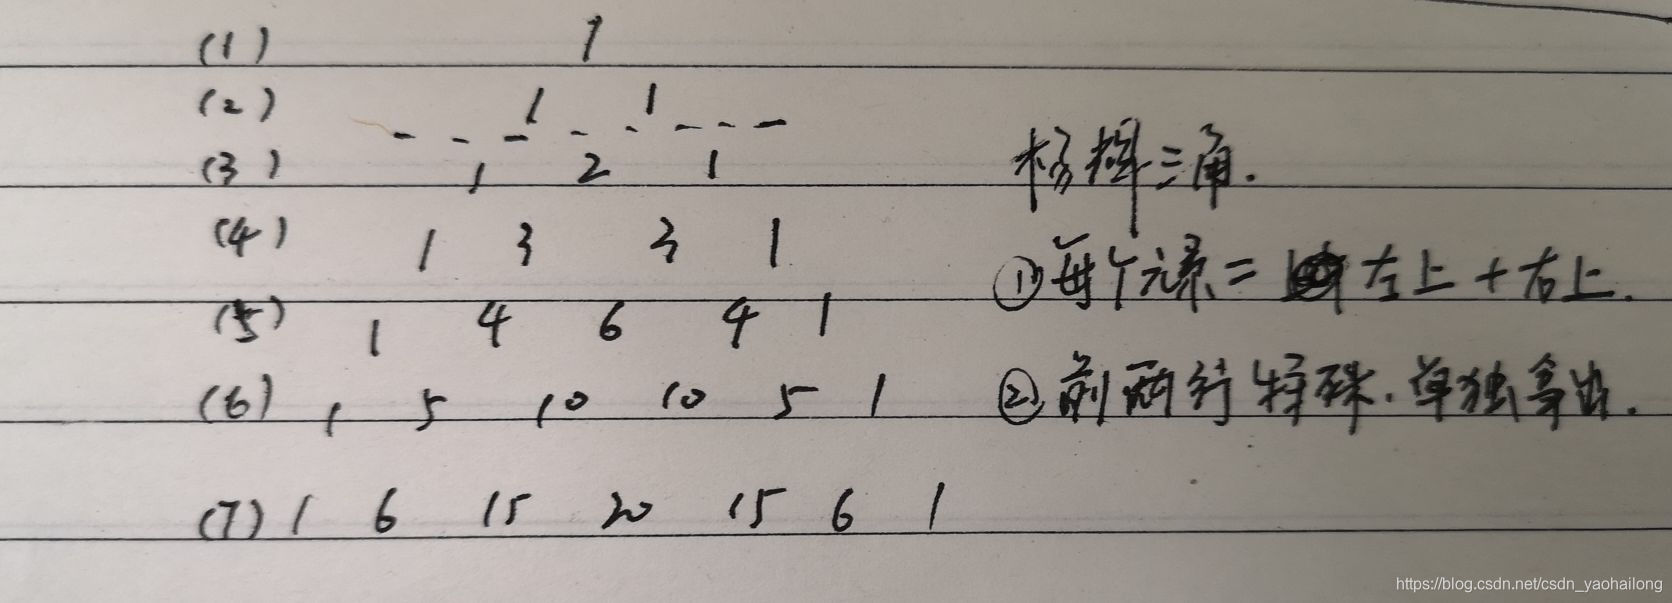 (1) 1
(2) 1 1
(3) 1 2 1
杨辉三角.
(4) 1 3 3 1
①每个元素= 左上+右上.
(5) 1 4 6 4 1
(6) 1 5 10 10 5 1
②前两行特殊.单独拿出.
(7) 1 6 15 20 15 6 1
https://blog.csdn.net/csdn_yaohailong